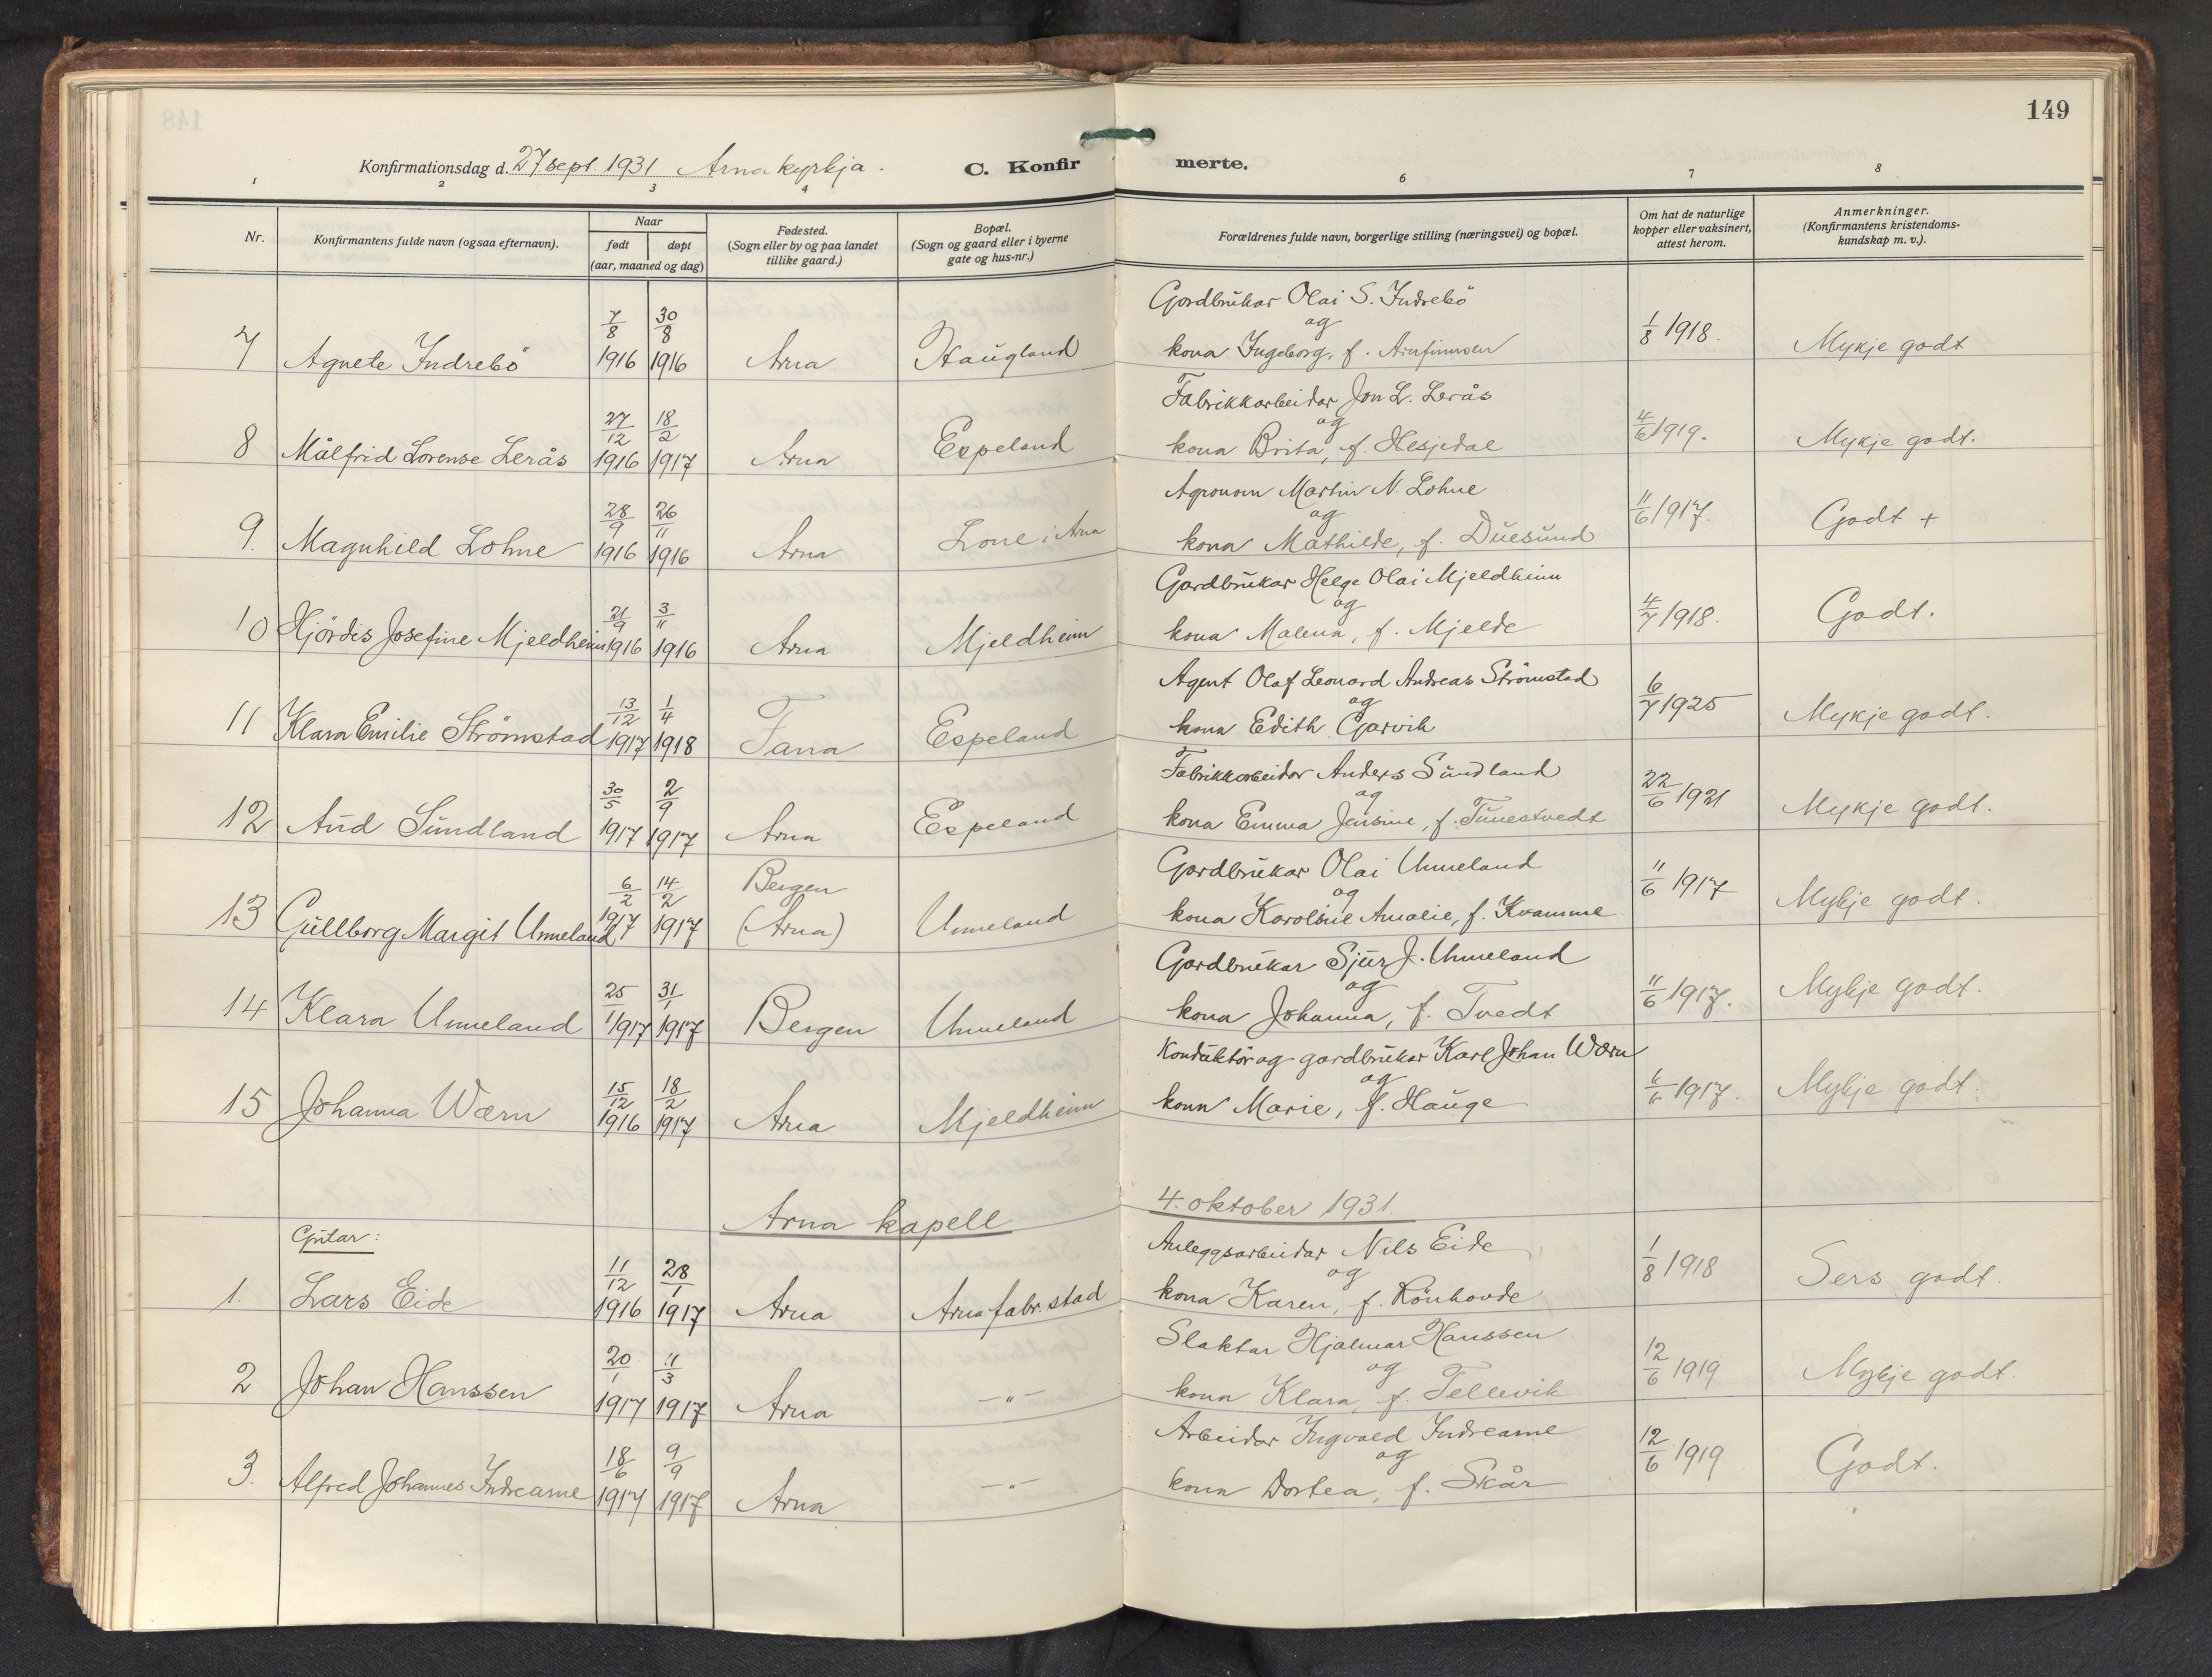 149
Konfirmationsdag d. 27 sept. 1931 Arna kyrkja. C. Konfirmerte.
1 2 3 4 6 7 8
Nr. Konfirmantens fulde navn (ogsaa efternavn). Naar født døpt (aar, maaned og dag) Fødested. (Sogn eller by og paa landet tillike gaard.) Bopæl. (Sogn og gaard eller i byerne gate og hus-nr.) Forældrenes fulde navn, borgerlige stilling (næringsvei) og bopæl. Om hat de naturlige kopper eller vaksinert, attest herom. Anmerkninger. (Konfirmantens kristendomskundskap m. v.).
7 Agnete Indrebö 7/8 1916 30/8 1916 Arna Haugland Gardbrukar Olai S. Indrebö og kona Ingeborg, f. Arnfinnsen 1/8 1918. Mykje godt
8 Målfrid Lorense Lerås 27/12 1916 18/2 1917 Arna Espeland Fabrikkarbeidar Jon L. Lerås og kona Brita, f. Hesjedal 4/6 1919. Mykje godt.
9. Magnhild Lohne 28/9 1916 26/11 1916 Arna Lone i Arna Agronom Martin N. Lohne og kona Mathilde, f. Duesund 11/6 1917. Godt +
10 Hjördis Josefine Mjeldheim 21/9 1916 3/11 1916 Arna Mjeldheim Gardbrukar Helge Olai Mjeldheim og kona Malena, f. Mjelde 4/7 1918. Godt.
11 Klara Emilie Strömstad 13/12 1917 1/4 1918 Fana Espeland Agent Olaf Leonard Andreas Strömstad og kona Edith Garvik 6/7 1925 Mykje godt.
12 Aud Sundland 30/5 1917 2/9 1917 Arna Espeland Fabrikkarbeidar Anders Sundland og kona Emma Jensine, f. Tunestvedt 22/6 1921 Mykje godt.
13 Gullborg Margit Unneland 6/2 1917 14/2 1917 Bergen (Arna) Unneland Gardbrukar Olai Unneland og kona Karoline Amalie, f. Kvamme 11/6 1917 Mykje godt.
14 Klara Unneland 25/1 1917 31/1 1917 Bergen Unneland Gardbrukar Sjur J. Unneland og kona Johanna, f. Tvedt 11/6 1917. Mykje godt.
15 Johanna Wærn 15/12 1916 18/2 1917 Arna Mjeldheim Konduktör og gardbrukar Karl Johan Wærn og kona Marie, f. Hauge 11/6 1917. Mykje godt.
Arna kapell 4. oktober 1931.
Gutar:
1. Lars Eide 11/12 1916 28/1 1917 Arna Arna fabr. stad Anleggsarbeidar Nils Eide og kona Karen, f. Rönhovde 1/8 1918 Sers godt.
2 Johan Hanssen 20/1 1917 11/3 1917 Arna —"— Slaktar Hjalmar Hanssen og kona Klara, f. Tellevik 12/6 1919 Mykje godt.
3. Alfred Johannes Indrearne 18/6 1917 9/9 1917 Arna —"— Arbeidar Ingvald Indrearne og kona Dortea, f. Skår 12/6 1919 Godt.